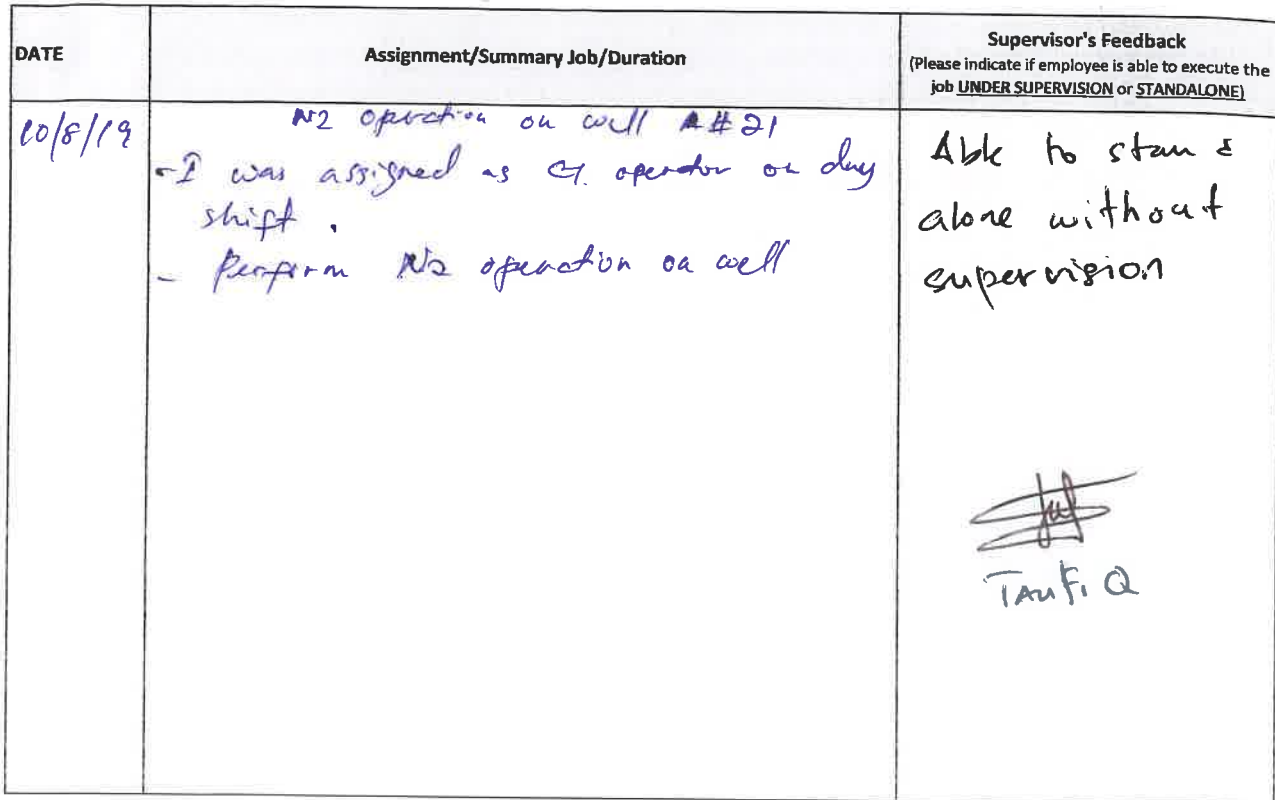 DATE
Assignment/Summary Job/Duration
Supervisor's Feedback
(Please indicate if employee is able to execute the
job UNDER SUPERVISION or STANDALONE)
10/8/19
N2 operation on well A#21
- I was assigned as CT. operator on day
shift.
- Perform N2 operation on well
Able to stand
alone without
supervision
TAUFIQ